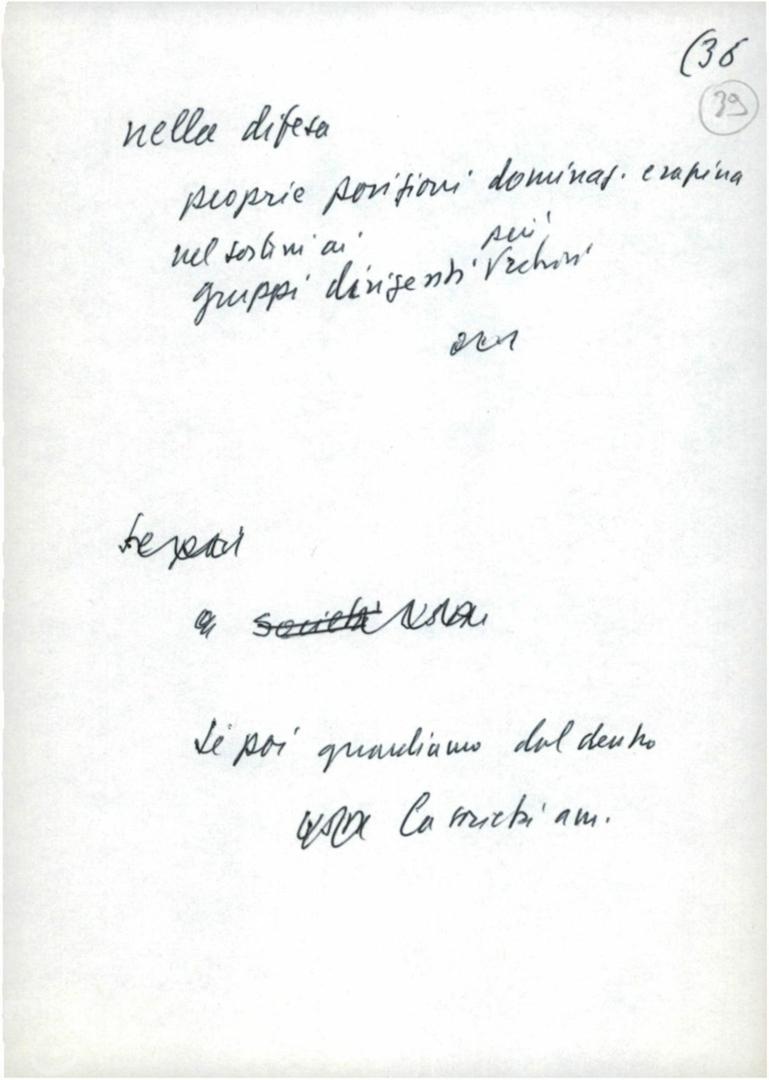 (36
39
nella difesa
proprie posizioni dominaz. e rapina
nel sostini ai
più
gruppi dirigenti
Se poi
a società USA
Se poi guardiamo dal dentro
USA la società am.